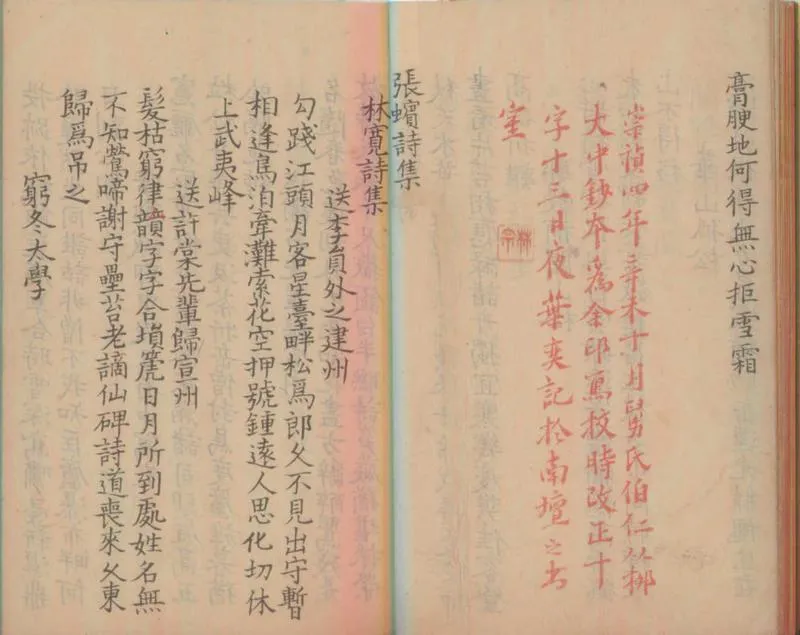 膏腴地何得無心拒雪霜
崇禎四年辛未十月舅氏伯仁以柳
大中鈔本為余印寫校時改正十
字十三日夜葉奕記於南壇之書
室
林宗
張蠙詩集
林寬詩集
送李員外之建州
勾踐江頭月客星臺畔松為郎久不見出守暫
相逢鳥泊牽灘索花空押號鍾遠人思化切休
上武夷峰
送許棠先輩歸宣州
髮枯窮律韻字字合塤箎日月所到處姓名無
不知鶯啼謝守壘苔老謫仙碑詩道喪來久東
歸為弔之
窮冬太學